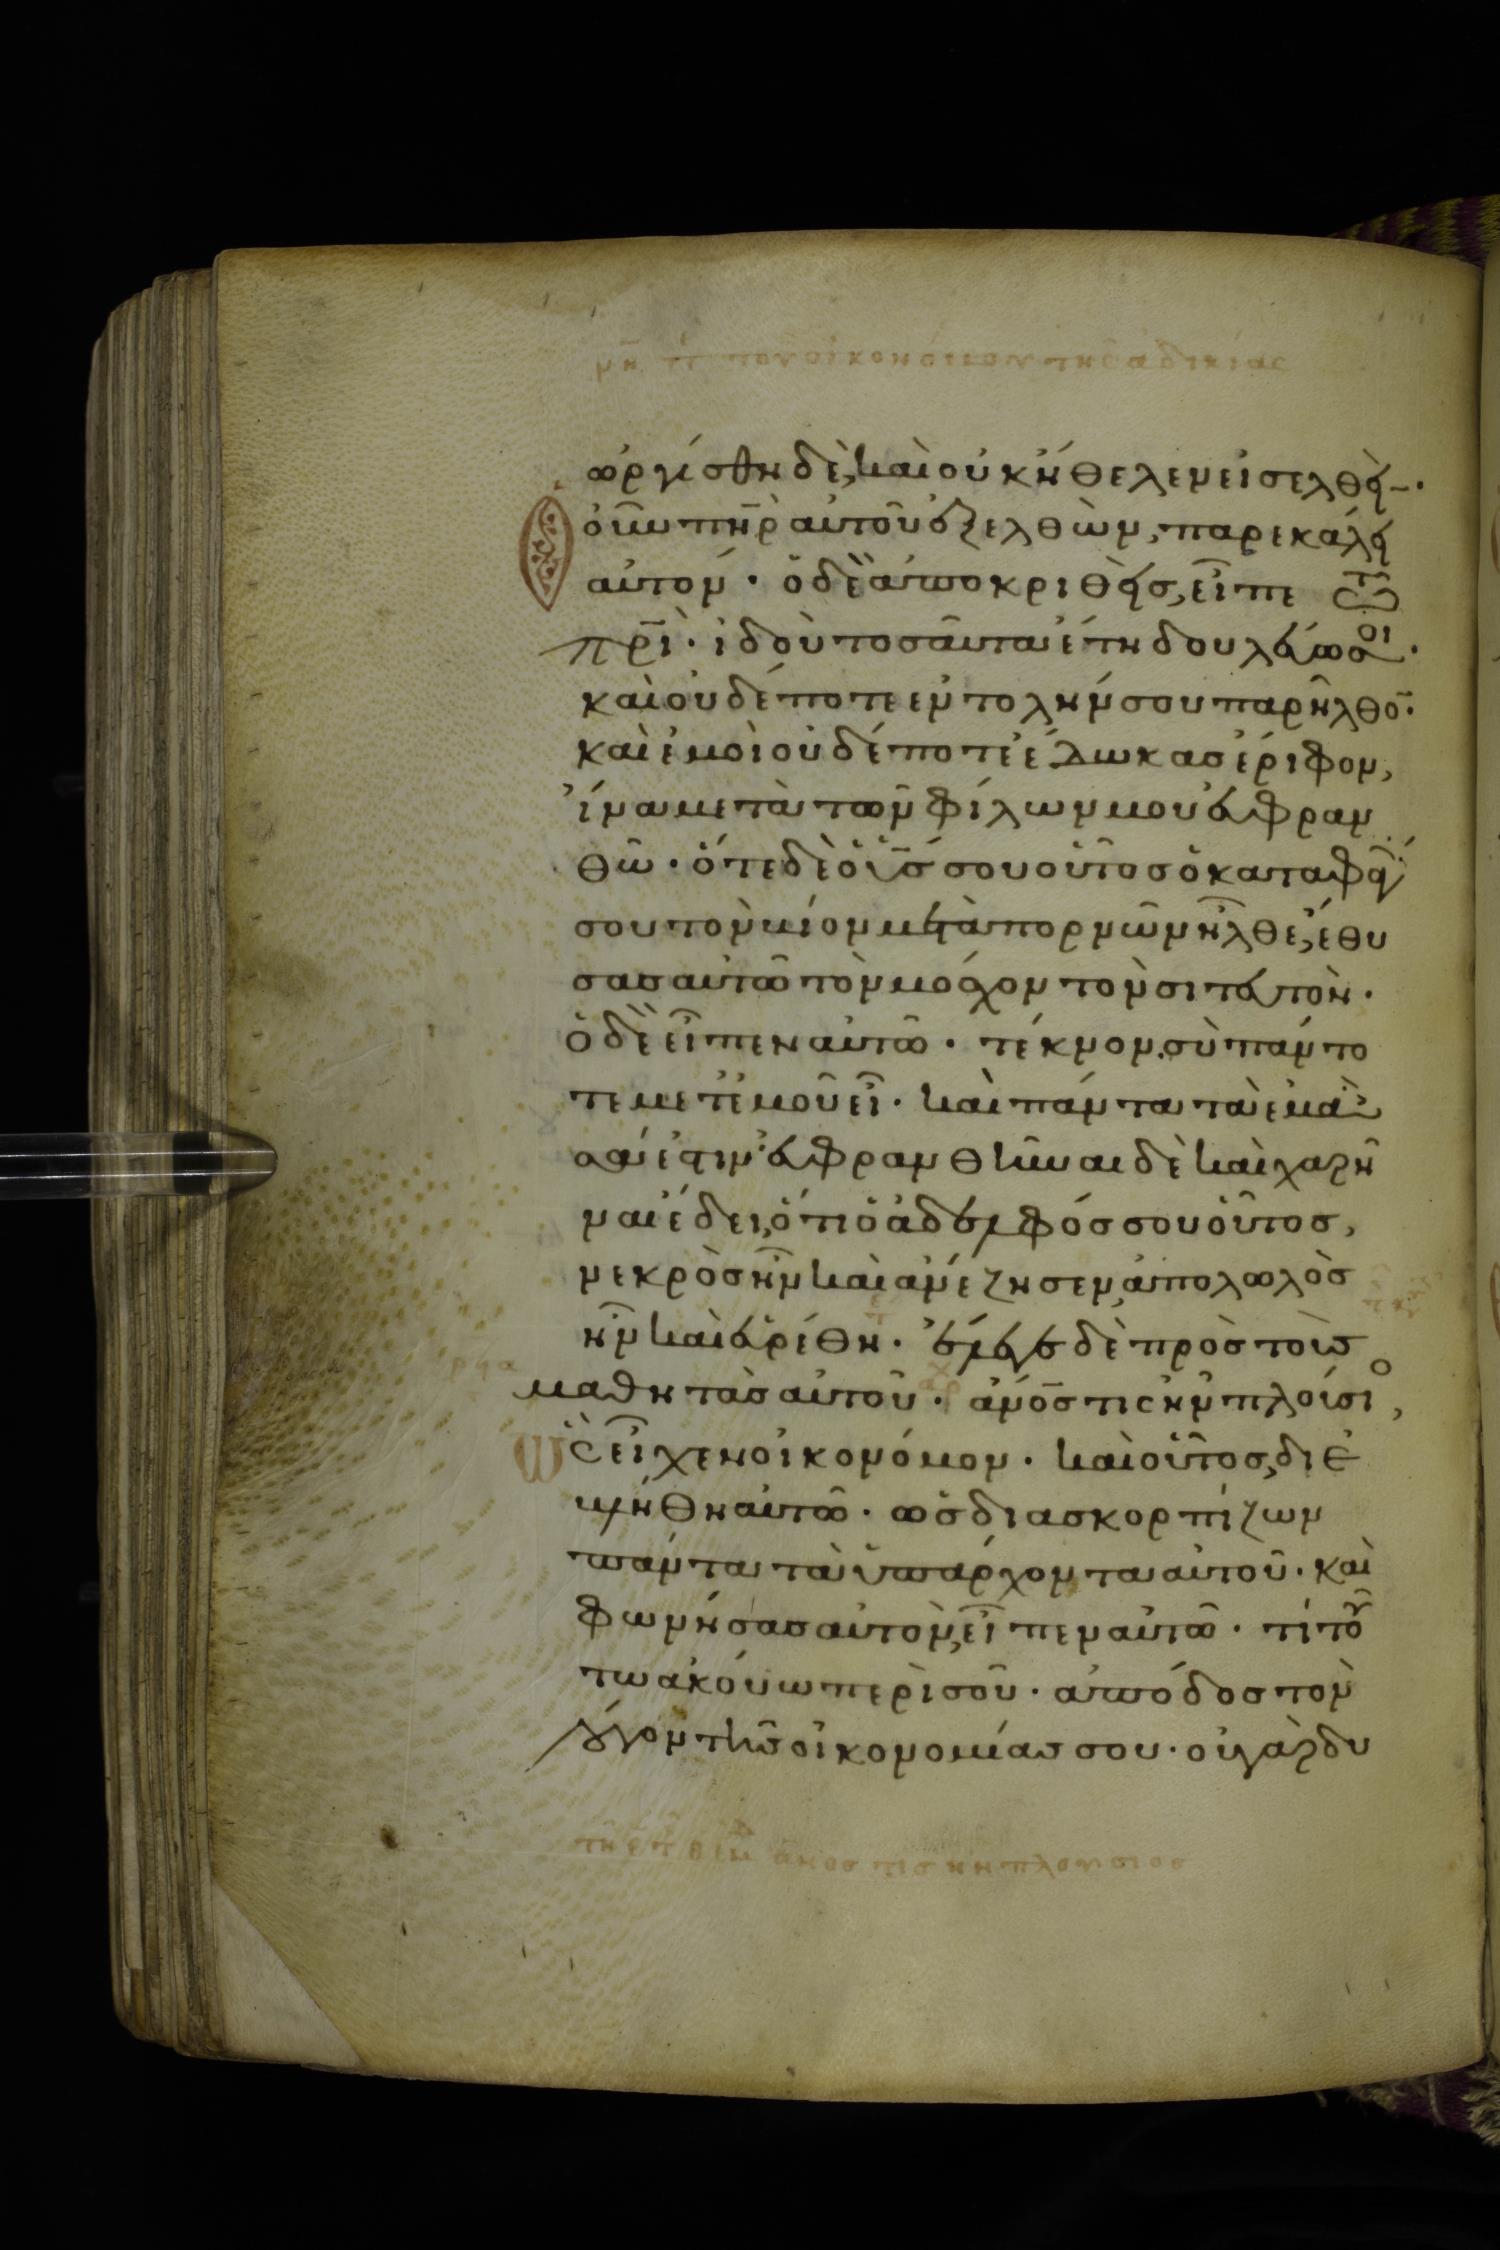 τοῦ οἰκονόμου τῆς ἀδικίας
ὠργίσθη δὲ, καὶ οὐκ ἤθελεν εἰσελθεῖν·
ὁ οὖν πηρ αὐτοῦ ἐξελθὼν, παρεκάλει
αὐτόν· ὁ δὲ ἀποκριθεὶς, εἶπε τῶ
πρι· ἰδοὺ τοσαῦτα ἔτη δουλεύω σοι·
καὶ οὐδέποτε ἐντολήν σου παρῆλθον·
καὶ ἐμοὶ οὐδέποτε ἔδωκας ἔριφον,
ἵνα μετὰ τῶν φίλων μου εὐφραν
θῶ· ὅτε δὲ ὁ υς σου οὗτος ὁ καταφαγών
σου τὸν βίον μετὰ πορνῶν ἦλθε, ἔθυ
σας αὐτῶ τὸν μόσχον τὸν σιτευτὸν·
ὁ δὲ εἶπεν αὐτῶ· τέκνον, σὺ πάντο
τε μετ' ἐμοῦ εἶ· καὶ πάντα τὰ ἐμὰ
σά ἐστιν· εὐφρανθῆναι δὲ καὶ χαρῆ
ναι ἔδει, ὅτι ὁ ἀδελφός σου οὗτος,
νεκρὸς ἦν καὶ ἀνέζησεν, ἀπολωλὸς
ἦν καὶ εὑρέθη· ἔλεγε δὲ πρὸς τοὺς
μαθητὰς αὐτοῦ· ἀνός τις ἦν πλούσιο,
ὃς εἶχεν οἰκονόμον· καὶ οὗτος, διε
βλήθη αὐτῶ· ὡς διασκορπίζων
πάντα τὰ ὑπάρχοντα αὐτοῦ· καὶ
φωνήσας αὐτὸν, εἶπεν αὐτῶ· τί τοῦ
τω ἀκούω περὶ σοῦ· ἀπόδος τὸν
λόγον τῆς οἰκονομίας σου· οὐ γὰρ δυ
ἄνος τις ἦν πλούσιος